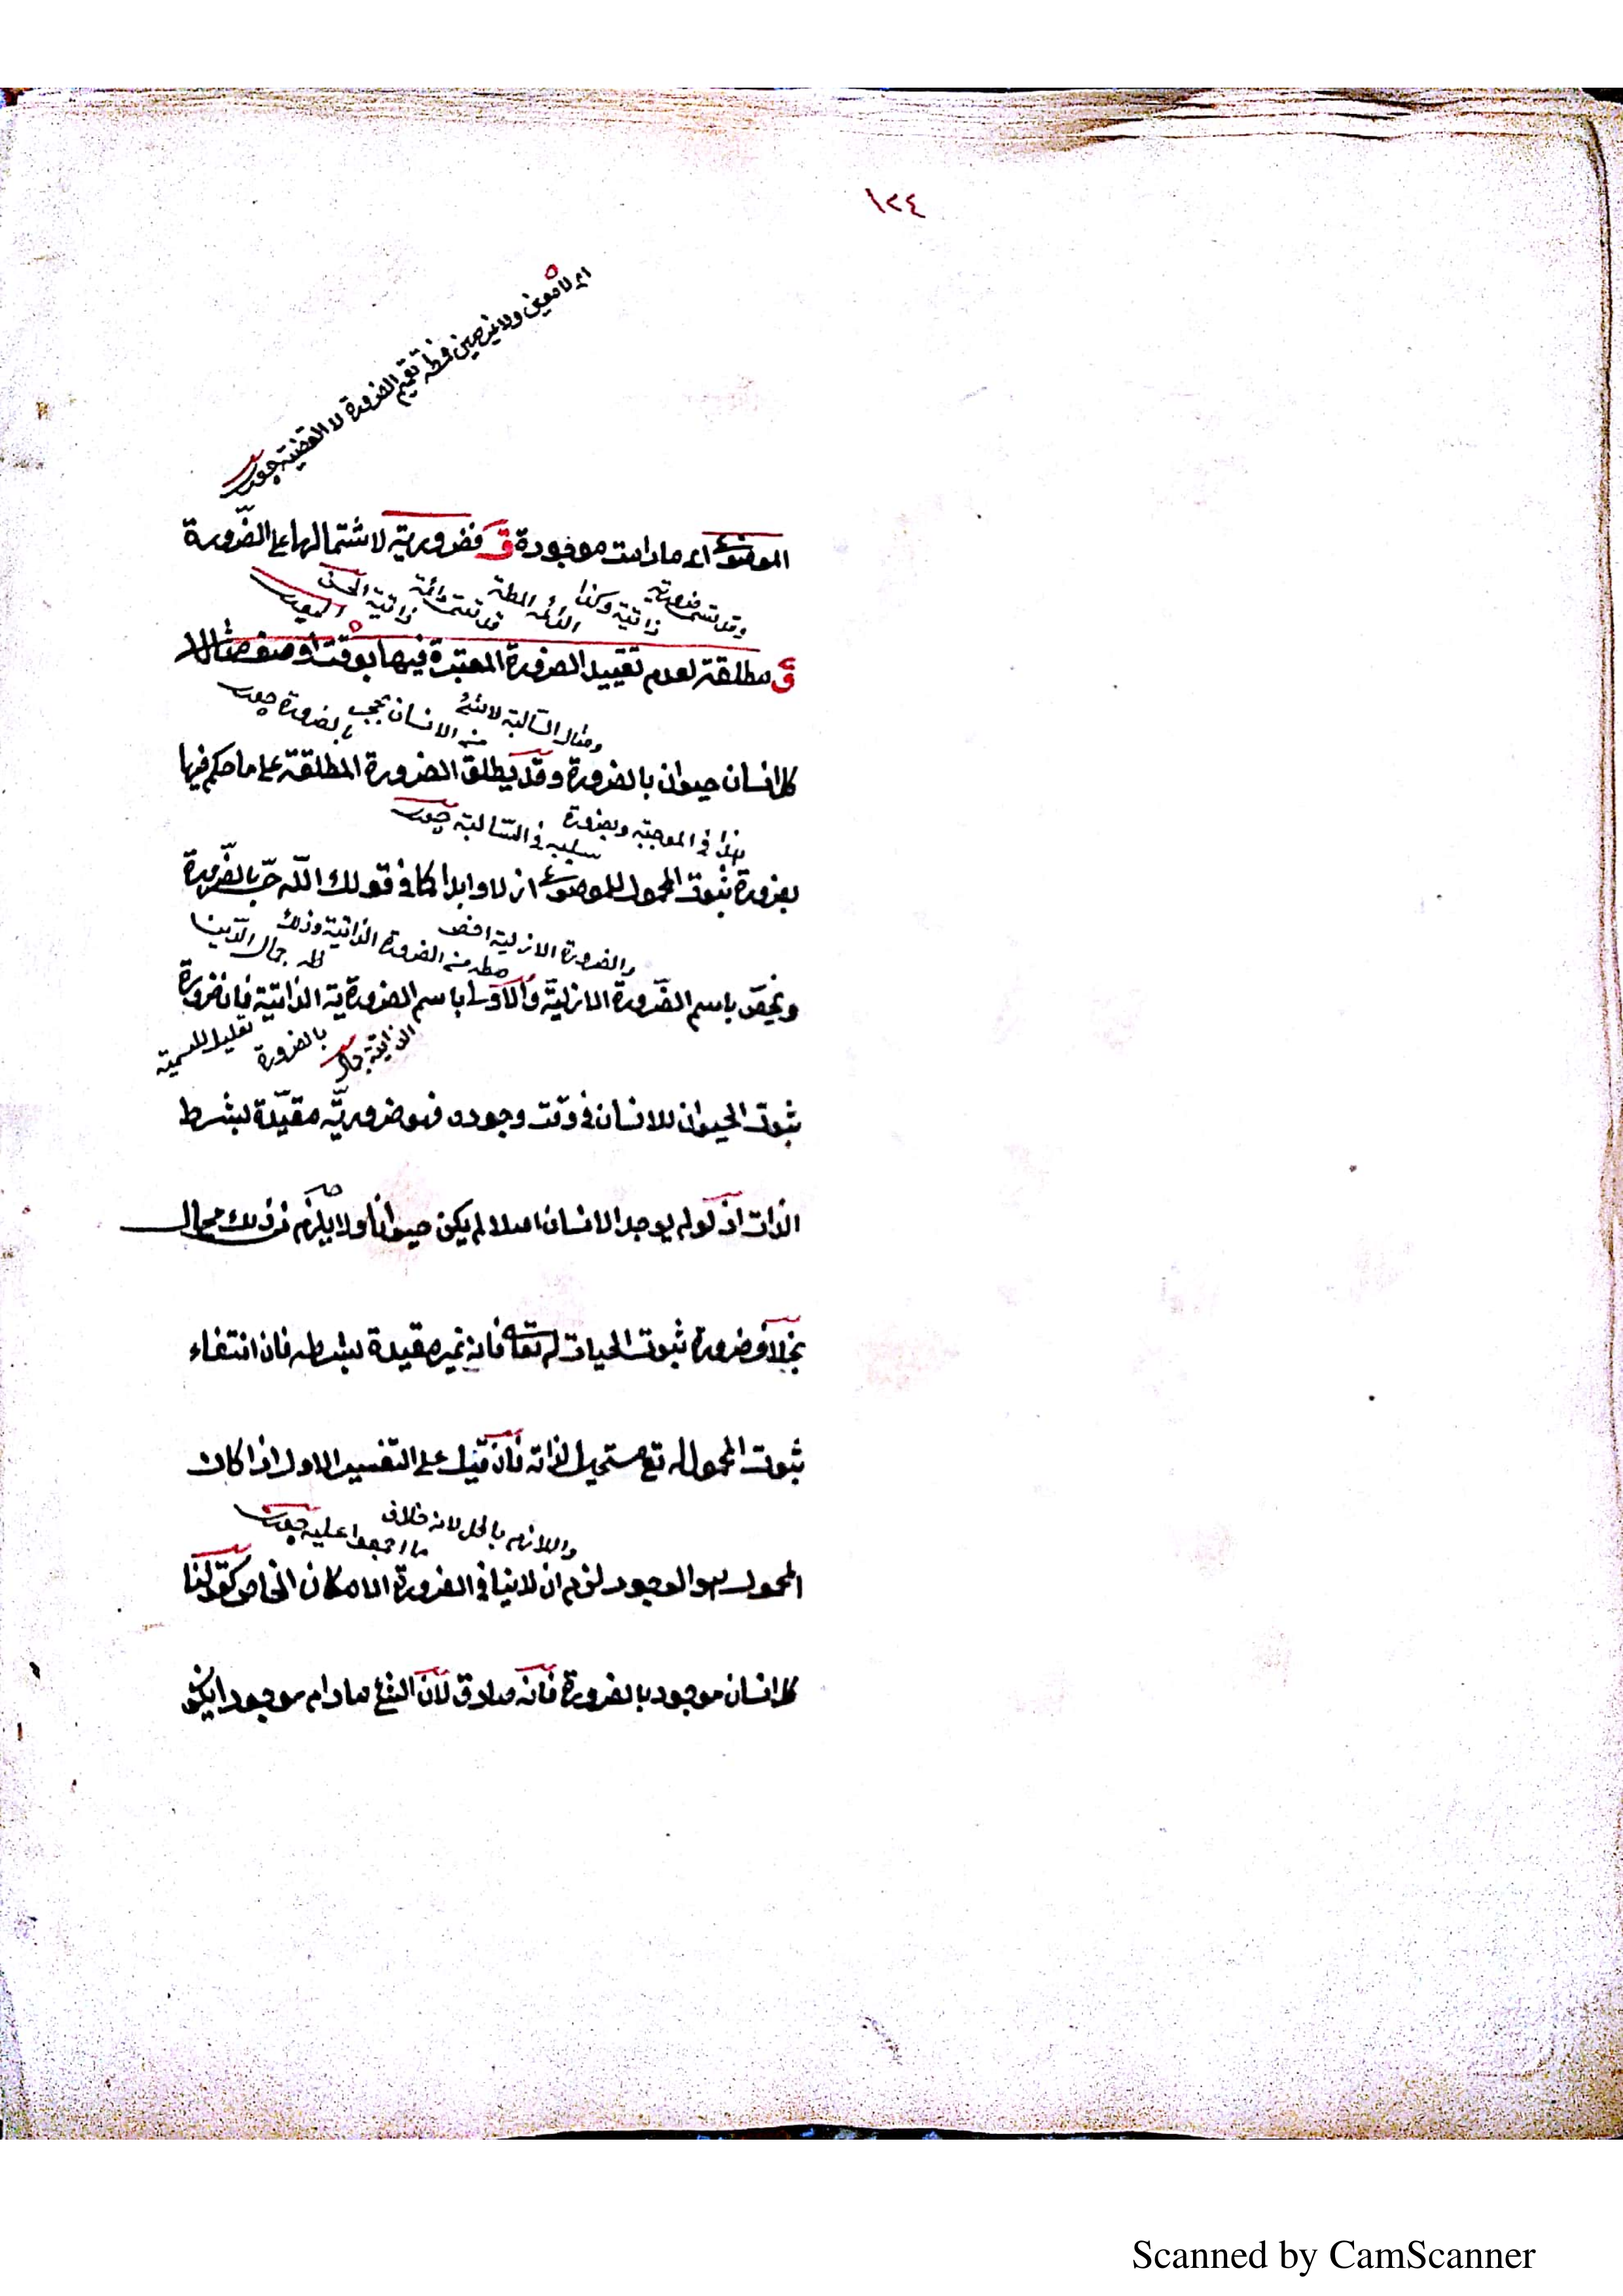 ١٢٤
اى لا معين ولا غير معين فيه تعميم الضرورة لا القضية
الموضوع اى ما دامت موجودة ق فضرورية لاشتمالها على الضّرورة
وقد تسمى ضرورية ذاتية وكذا الدائمة المطلقة قد تسمى دائمة ذاتية
ق مطلقة لعدم تقييد الضرورة المعتبرة فيها بوقت او وصف مثالها
ومثال السّالبة لا شئ من الانسان بحجر بالضرورة
كل انسان حيوان بالضرورة وقد يطلق الضرورة المطلقة على ما حكم فيها
هذا فى الموجبة وبضرورة سلبه فى السّالبة
بضرورة ثبوت المحمول للموضوع ازلا وابدا كما فى قولك اللّه حىّ بالضّرورة
والضرورة الازلية اخص مطلقا من الضرورة الذاتية وذلك
ويخصّ باسم الضّرورة الازليّة والاولى باسم الضرورية الذاتيّة فان ضرورة
الذاتية بالضرورة تعليل للتسمية
ثبوت الحيوان للانسان فى وقت وجوده فهو ضروريّة مقيّدة بشرط
الذات اذ لو لم يوجد الانسان اصلا لم يكن حيوانا ولا يلزم من ذلك محال
بخلاف ضرورة ثبوت الحيات له تعالى فانه غير مقيدة بشرط فان انتفاء
ثبوت المحمول له تع مستحيل لذاته فان قيل على التفسير الاول اذا كان
واللازم باطل لانه خلاف ما اجمعوا عليه
المحمول هو الوجود لزم ان لا ينافى الضرورة الامكان الخاص كقولنا
كل انسان موجود بالضرورة فانه صادق لان الشئ ما دام موجودا يكو
Scanned by CamScanner